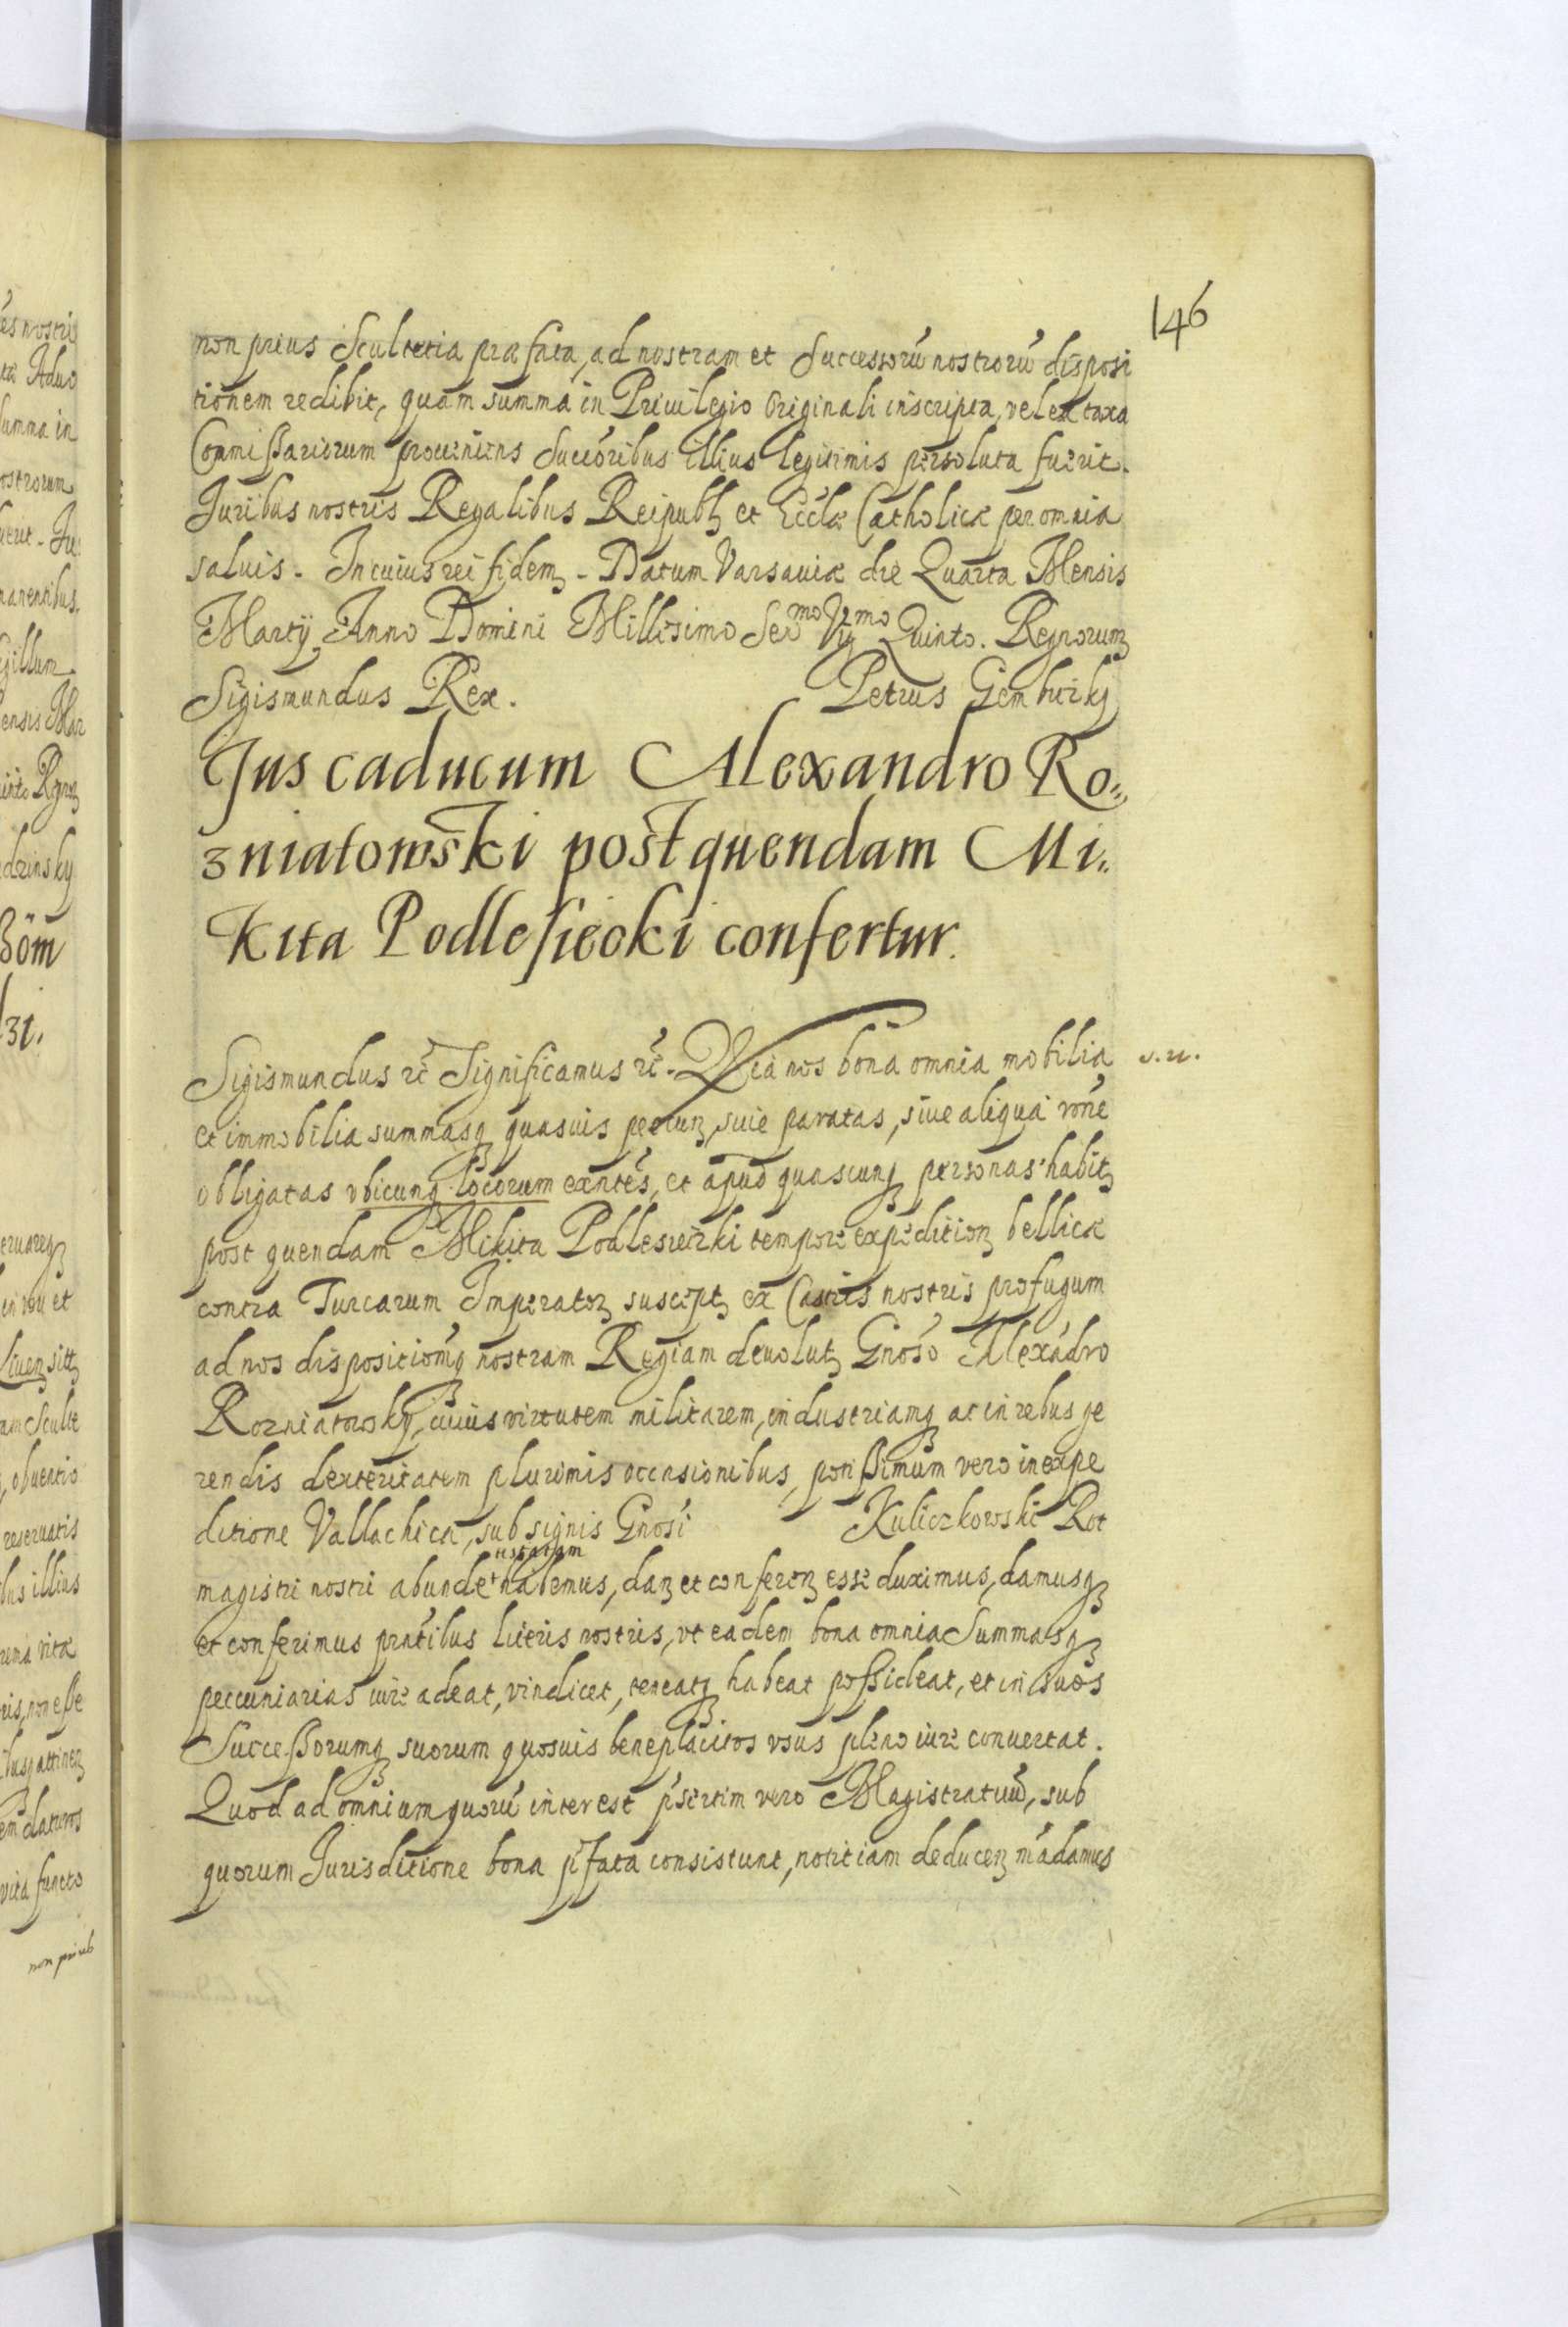 146
non prius Scultetia præfata, ad nostram et Successorū nostrorū disposi
tionem redibit, quam summa in Priuilegio Originali inscripta, vel ex taxa
Commißariorum proueniens Succoribus illius legitimis persoluta fuerit.
Juribus nostris Regalibus Reipubl et Ecclæ Catholicæ per omnia
saluis. In cuius rei fidem. Datum Varsauiæ die Quarta Mensis
Martij Anno Domini Millesimo Sexmo Vigmo Quinto. Regnorum
Sigismundus Rex. Petrus Gembiczkj
Jus caducum Alexandro Ro„
zniatowski post quendam Mi„
kita Podlesiecki confertur.
Sigismundus etc̄ Significamus etc̄. Quia nos bona omnia mobilia s. n.
et immobilia summasq quasuis pecun, siue paratas, siue aliqua rōne
obligatas vbicunq locorum exn̄tes, et apud quascunq personas habit
post quendam Mikita Podlesieczki tempore expedition bellicæ
contra Turcarum Imperator suscept ex Castris nostris profugum
ad nos dispositiomq nostram Regiam deuolut Gnoso Alexādro
Rozniatowsky, cuius virtutem militarem, industriamq ac in rebus ge
rendis dexteritatem plurimis occasionibus, potißimum vero in expe
ditione Vallachica, sub signis Gnosi Kuliczkowski Rot
magistri nostri abunde testatam habemus, dan et conferen esse duximus, damusq
et conferimus prntibus literis nostris, vt eadem bona omnia Summasq
peccuniarias iure adeat, vindicet, teneatq habeat poßideat, et in suos
Succeßorumq suorum quosuis beneplacitos vsus pleno iure conuertat.
Quod ad omnium quorū interest p̄sertim vero Magistratuū, sub
quorum Jurisditione bona p̄fata consistunt, notitiam deducen mādamus